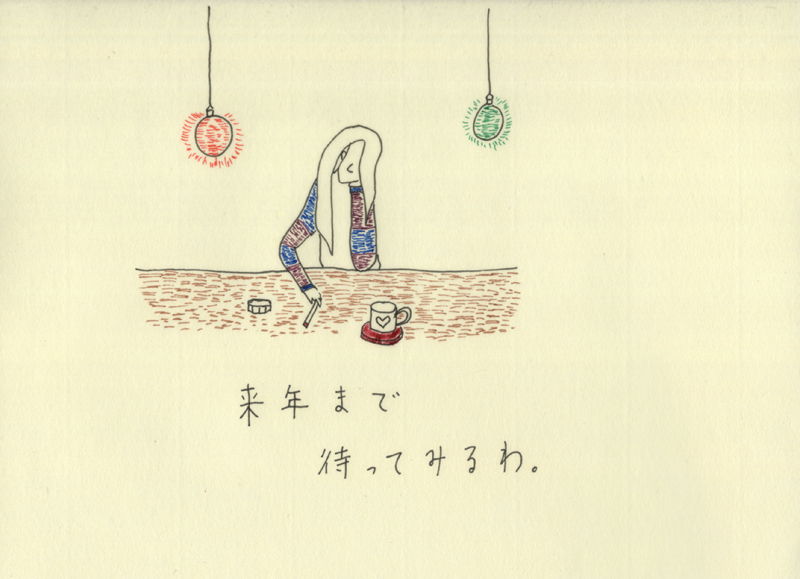 来年まで
待ってみるわ。